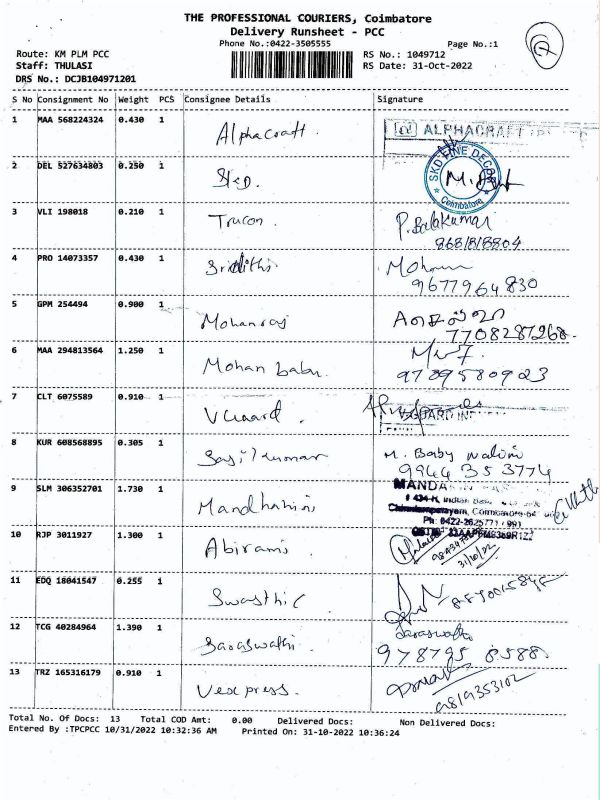 THE PROFESSIONAL COURIERS, Coimbatore
Delivery Runsheet - PCC
Phone No.:0422-3505555
Page No.:1
7
Route: KM PLM PCC
RS No.: 1049712
Staff: THULASI
RS Date: 31-Oct-2022
DRS No.: DCJB104971201
S No Consignment No Weight PCS Consignee Details Signature
1 MAA 568224324 0.430 1 Alphacraft. ALPHACRAFT
2 DEL 527634803 0.250 1 SKD. SKD FINE DECOR Coimbatore
3 VLI 198018 0.210 1 Trucon. P. Balakumar
868/8/8804
4 PRO 14073357 0.430 1 Sridithi Mohan
9677964830
5 GPM 254494 0.900 1 Mohanraj
7708287268.
6 MAA 294813564 1.250 1 Mohan babu.
9789580923
7 CLT 6075589 0.910 1 VGuard. VGUARD
8 KUR 608568895 0.305 1 Sasikumar M. Baby nalini
9944353774
9 SLM 306352701 1.730 1 Mandhahini
10 RJP 3011927 1.300 1 Abirami
31/10/22
11 EDQ 18041547 0.255 1 Swasthic
12 TCG 40284964 1.390 1 Saraswathi. Saraswathi
978795 8588
13 TRZ 165316179 0.910 1 Vexpress.
9819353102
Total No. Of Docs: 13 Total COD Amt: 0.00 Delivered Docs: Non Delivered Docs:
Entered By :TPCPCC 10/31/2022 10:32:36 AM Printed On: 31-10-2022 10:36:24